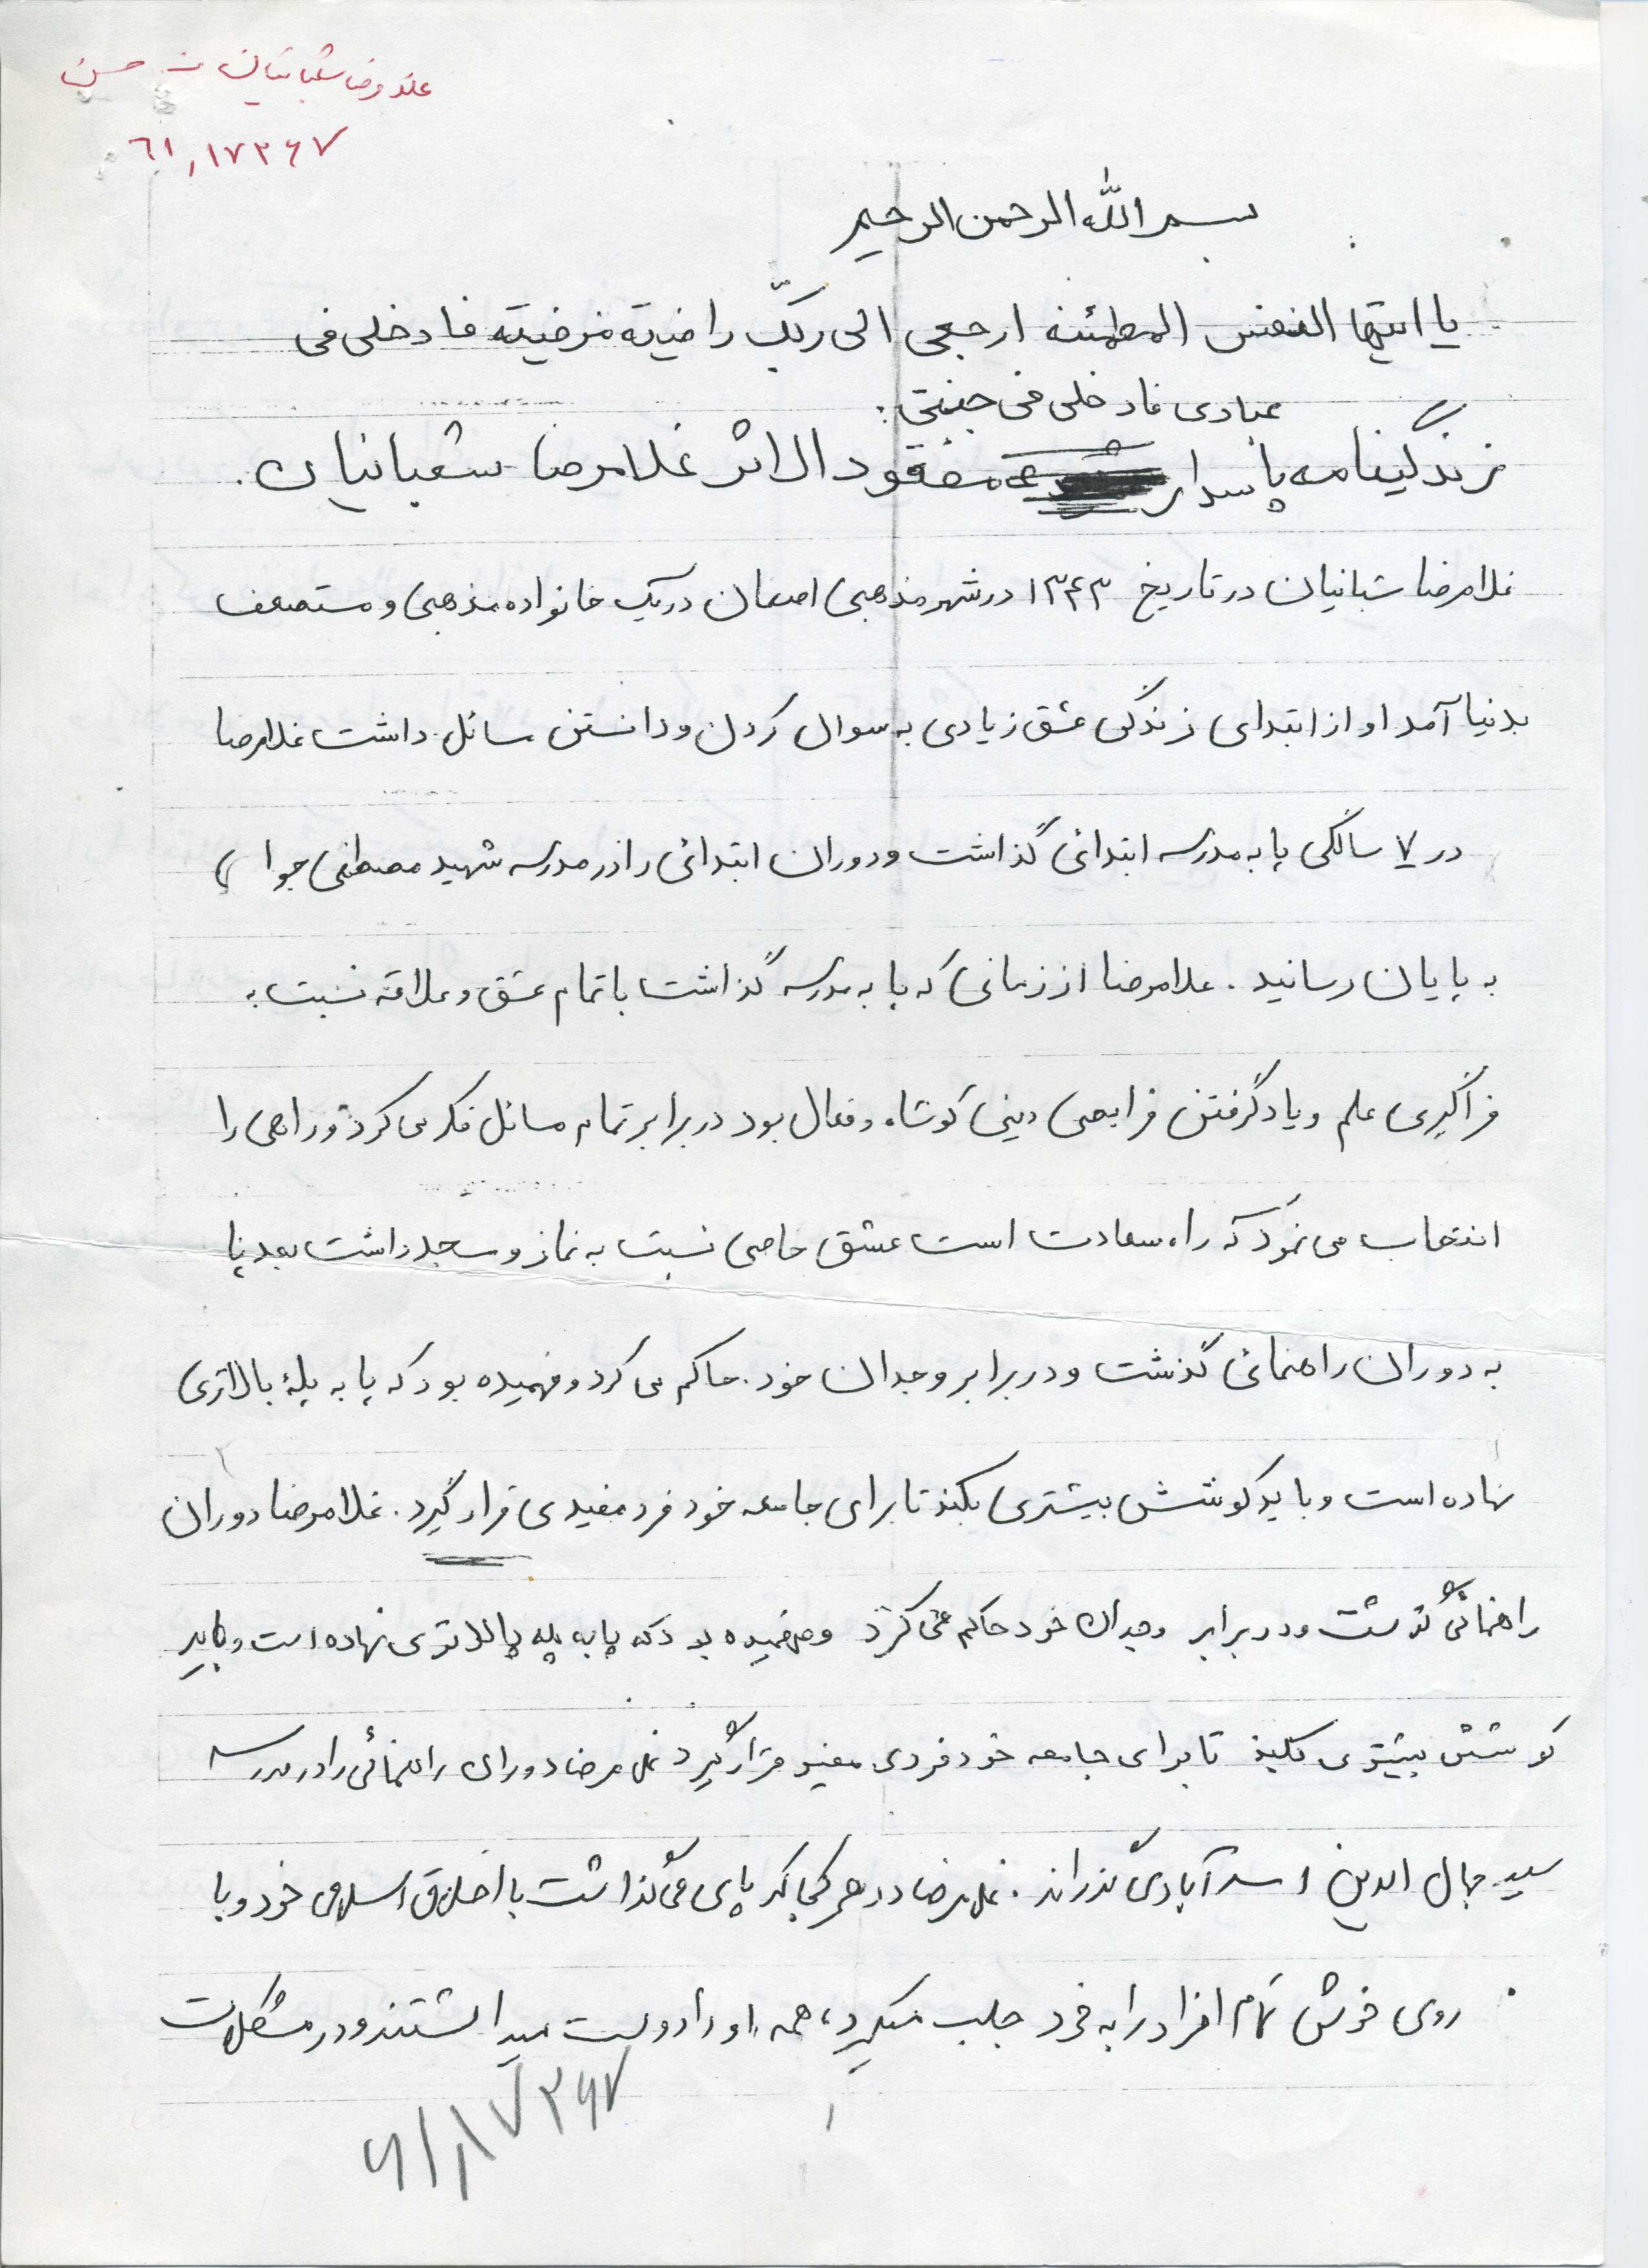 غلامرضا شعبانیان ت حسن
٦١,١٧٢٤٧
بسم الله الرحمن الرحیم
یا ایتها النفس المطمئنه ارجعی الی ربّک راضیة مرضیته فادخلی فی
عبادی فادخلی فی جنتی:
زندگینامه پاسدار مفقود الاثر غلامرضا شعبانیان.
غلامرضا شبانیان در تاریخ ۱۳۴۳ در شهر مذهبی اصفهان در یک خانواده مذهبی و مستضعف
بدنیا آمد او از ابتدای زندگی عشق زیادی به سوال کردن و دانستن مسائل داشت غلامرضا
در ۷ سالگی پا به مدرسه ابتدائی گذاشت و دوران ابتدائی را در مدرسه شهید مصطفی
به پایان رسانید. غلامرضا از زمانی که پا به مدرسه گذاشت با تمام عشق و علاقه نسبت به
فراگیری علم و یاد گرفتن فرایضی دینی کوشا و فعال بود در برابر تمام مسائل فکر می کرد و راهی را
انتخاب می نمود که راه سعادت است عشق خاصی نسبت به نماز و مسجد داشت بعد پا
به دوران راهنمائی گذشت و در برابر وجدان خود حاکم می کرد و فهمیده بود که پا به پلهٔ بالاتری
نهاده است و باید کوشش بیشتری بکند تا برای جامعه خود فرد مفیدی قرار گیرد. غلامرضا دوران
راهنمائی گذشت و در برابر وجدان خود حاکم می کرد و فهمیده بود که پا به پله بالاتری نهاده است و باید
کوشش بیشتری بکند تا برای جامعه خود فردی مفید قرار گیرد غلامرضا دوران راهنمائی را در مدرسه
سید جمال الدین اسد آبادی گذراند. غلامرضا در هر کجا که پای می گذاشت با اخلاق اسلامی خود و با
روی خوش تمام افراد را به خود جلب میکرد، همه او را دوست میداشتند و در مشکلات
۶۱٫۱۷۲۴۷